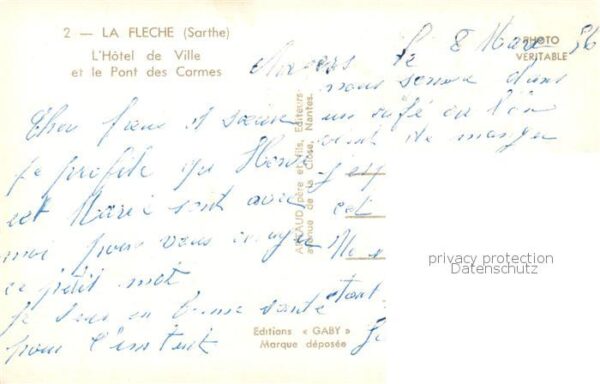 2 — LA FLECHE (Sarthe)
L'Hôtel de Ville
et le Pont des Carmes
PHOTO
VERITABLE
Angers le 8 Mars 56
Cher frère et soeur
je profite que
et Marie sont avec
moi pour vous envoyer
ce petit mot
je suis en bonne santé
pour l'instant
nous somme dans
un café ou l'on
vient de manger
et
ARNAUD père et fils, Editeurs
avenue de la Close, Nantes.
Editions « GABY »
Marque déposée
privacy protection
Datenschutz